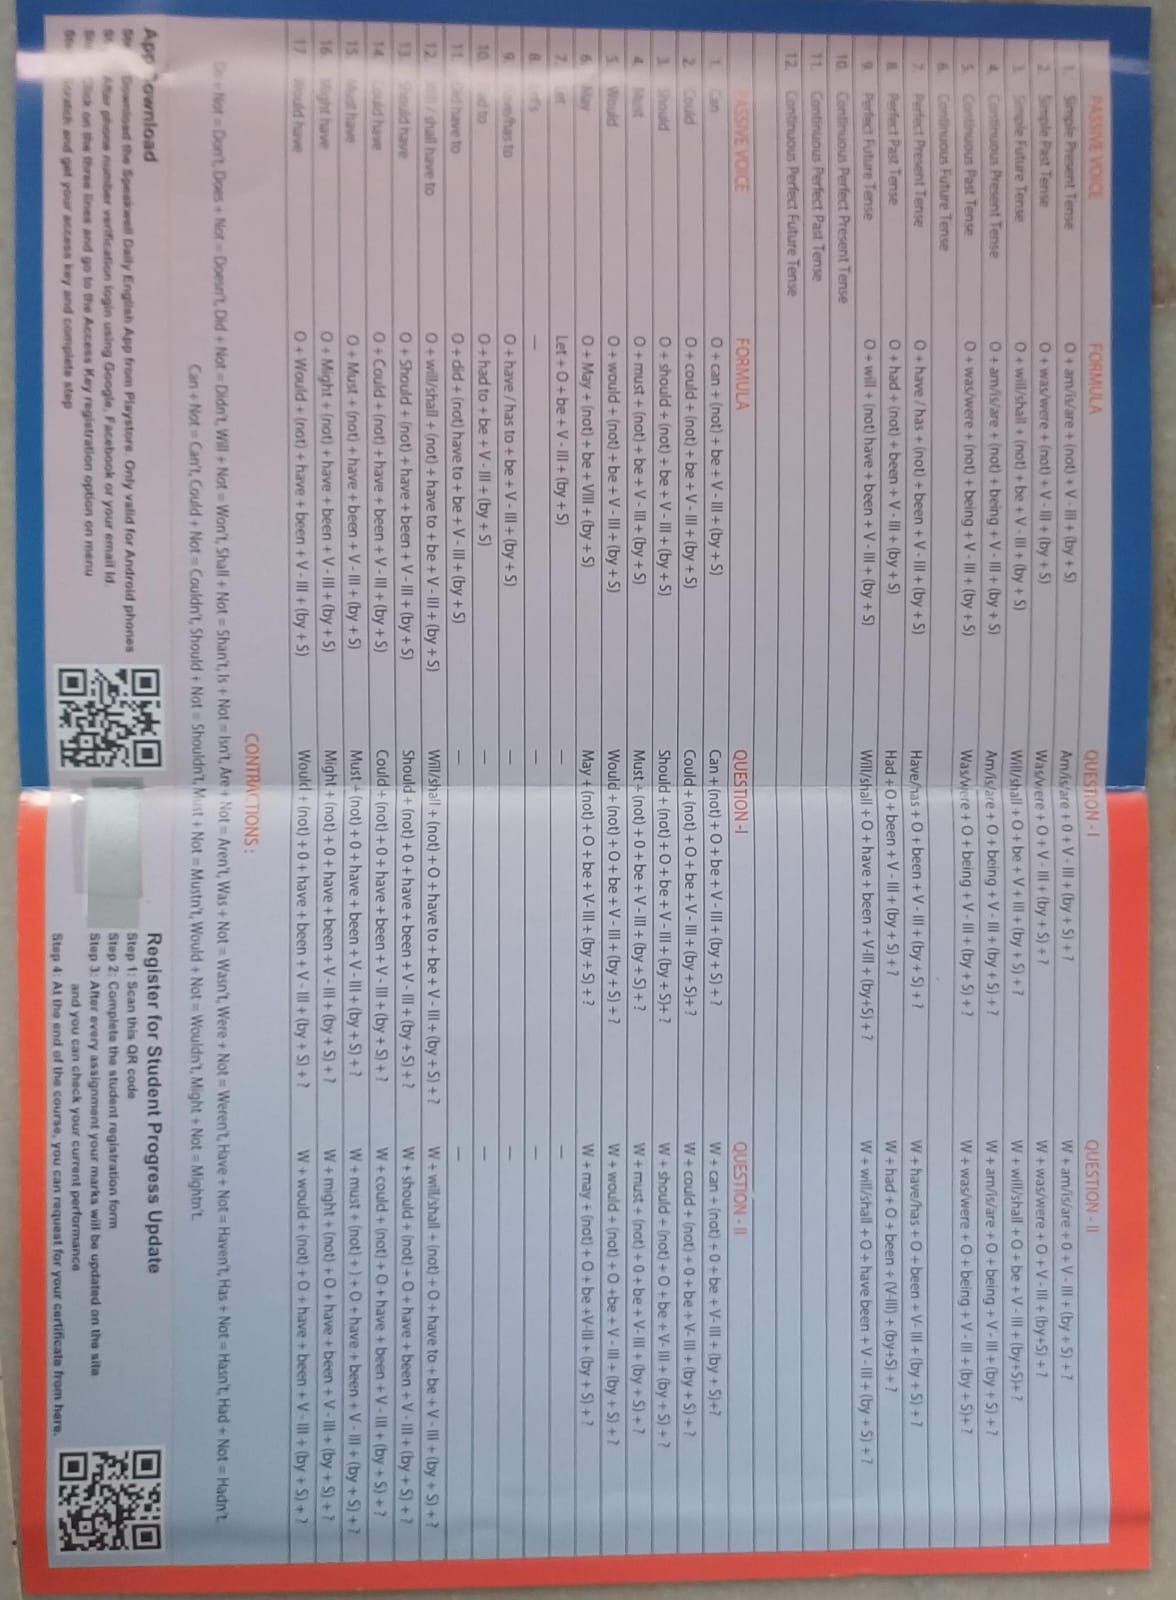 PASSIVE VOICE FORMULA QUESTION - I QUESTION - II
1. Simple Present Tense O + am/is/are + (not) + V - III + (by + S) Am/is/are + O + V - III + (by + S) + ? W + am/is/are + O + V - III + (by + S) + ?
2. Simple Past Tense O + was/were + (not) + V - III + (by + S) Was/were + O + V - III + (by + S) + ? W + was/were + O + V - III + (by+S) + ?
3. Simple Future Tense O + will/shall + (not) + be + V - III + (by + S) Will/shall + O + be + V + III + (by + S) + ? W + will/shall + O + be + V - III + (by+S)+ ?
4. Continuous Present Tense O + am/is/are + (not) + being + V - III + (by + S) Am/is/are + O + being + V - III + (by + S) + ? W + am/is/are + O + being + V - III + (by + S) + ?
5. Continuous Past Tense O + was/were + (not) + being + V - III + (by + S) Was/were + O + being + V - III + (by + S) + ? W + was/were + O + being + V - III + (by + S)+ ?
6. Continuous Future Tense
7. Perfect Present Tense O + have / has + (not) + been + V - III + (by + S) Have/has + O + been + V - III + (by + S) + ? W + have/has + O + been + V- III + (by + S) + ?
8. Perfect Past Tense O + had + (not) + been + V - III + (by + S) Had + O + been + V - III + (by + S) + ? W + had + O + been + (V-III) + (by+S) + ?
9. Perfect Future Tense O + will + (not) have + been + V - III + (by + S) Will/shall + O + have + been + V-III + (by+S) + ? W + will/shall + O + have been + V - III + (by + S) + ?
10. Continuous Perfect Present Tense
11. Continuous Perfect Past Tense
12. Continuous Perfect Future Tense
PASSIVE VOICE FORMULA QUESTION -I QUESTION - II
1. Can O + can + (not) + be + V - III + (by + S) Can + (not) + O + be + V - III + (by + S) + ? W + can + (not) + O + be + V- III + (by + S)+?
2. Could O + could + (not) + be + V - III + (by + S) Could + (not) + O + be + V - III + (by + S)+ ? W + could + (not) + O + be + V- III + (by + S) + ?
3. Should O + should + (not) + be + V - III + (by + S) Should + (not) + O + be + V - III + (by + S)+ ? W + should + (not) + O + be + V- III + (by + S) + ?
4. Must O + must + (not) + be + V - III + (by + S) Must + (not) + O + be + V - III + (by + S) + ? W + must + (not) + O + be + V- III + (by + S) + ?
5. Would O + would + (not) + be + V - III + (by + S) Would + (not) + O + be + V - III + (by + S) + ? W + would + (not) + O +be + V - III + (by + S) + ?
6. May O + May + (not) + be + VIII + (by + S) May + (not) + O + be + V- III + (by + S) + ? W + may + (not) + O + be +V-III + (by + S) + ?
7. Let Let + O + be + V - III + (by + S) — —
8. — — —
9. have/has to O + have / has to + be + V - III + (by + S) — —
10. had to O + had to + be + V - III + (by + S) — —
11. Did have to O + did + (not) have to + be + V - III + (by + S) — —
12. will / shall have to O + will/shall + (not) + have to + be + V - III + (by + S) Will/shall + (not) + O + have to + be + V - III + (by + S) + ? W + will/shall + (not) + O + have to + be + V - III + (by + S) + ?
13. Should have O + Should + (not) + have + been + V - III + (by + S) Should + (not) + O + have + been + V - III + (by + S) + ? W + should + (not) + O + have + been + V - III + (by + S) + ?
14. Could have O + Could + (not) + have + been + V - III + (by + S) Could + (not) + O + have + been + V - III + (by + S) + ? W + could + (not) + O + have + been + V - III + (by + S) + ?
15. Must have O + Must + (not) + have + been + V - III + (by + S) Must + (not) + O + have + been + V - III + (by + S) + ? W + must + (not) + ) + O + have + been + V - III + (by + S) + ?
16. Might have O + Might + (not) + have + been + V - III + (by + S) Might + (not) + O + have + been + V - III + (by + S) + ? W + might + (not) + O + have + been + V - III + (by + S) + ?
17. Would have O + Would + (not) + have + been + V - III + (by + S) Would + (not) + O + have + been + V - III + (by + S) + ? W + would + (not) + O + have + been + V - III + (by + S) + ?
CONTRACTIONS :
Do + Not = Don't, Does + Not = Doesn't, Did + Not = Didn't, Will + Not = Won't, Shall + Not = Shan't, Is + Not = Isn't, Are + Not = Aren't, Was + Not = Wasn't, Were + Not = Weren't, Have + Not = Haven't, Has + Not = Hasn't, Had + Not = Hadn't.
Can + Not = Can't, Could + Not = Couldn't, Should + Not = Shouldn't, Must + Not = Mustn't, Would + Not = Wouldn't, Might + Not = Mightn't.
App Download
Download the Speakwell Daily English App from Playstore. Only valid for Android phones
After phone number verification login using Google, Facebook or your email id.
Click on the three lines and go to the Access Key registration option on menu
Scratch and get your access key and complete step
Register for Student Progress Update
Step 1: Scan this QR code
Step 2: Complete the student registration form
Step 3: After every assignment your marks will be updated on the site
and you can check your current performance
Step 4: At the end of the course, you can request for your certificate from here.